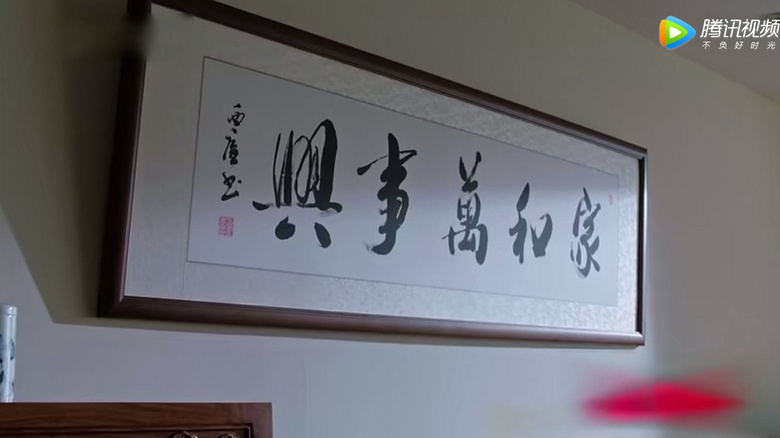 家和萬事興
腾讯视频
不负好时光